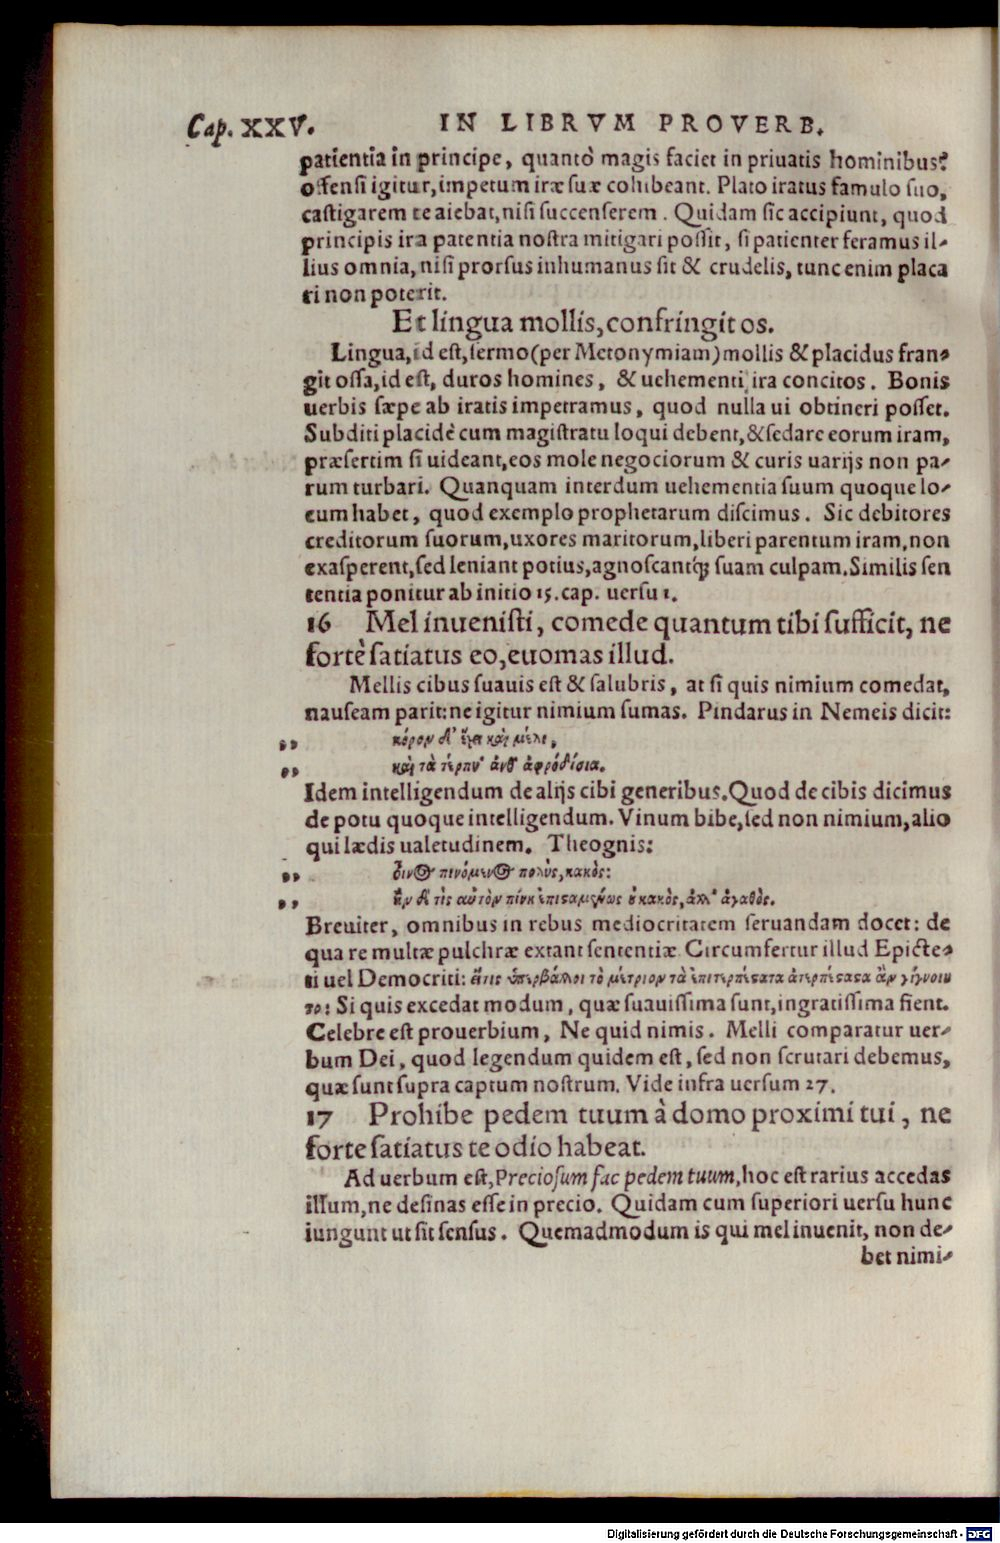 Cap. XXV. IN LIBRVM PROVERB.
patientia in principe, quantò magis faciet in priuatis hominibus?
offensi igitur, impetum iræ suæ cohibeant. Plato iratus famulo suo,
castigarem te aiebat, nisi succenserem. Quidam sic accipiunt, quod
principis ira patentia nostra mitigari possit, si patienter feramus il-
lius omnia, nisi prorsus inhumanus sit & crudelis, tunc enim placa
ri non poterit.
Et lingua mollis, confringit os.
Lingua, id est, sermo (per Metonymiam) mollis & placidus fran-
git ossa, id est, duros homines, & uehementi ira concitos. Bonis
uerbis sæpe ab iratis impetramus, quod nulla ui obtineri posset.
Subditi placidè cum magistratu loqui debent, & sedare eorum iram,
præsertim si uideant, eos mole negociorum & curis uarijs non pa-
rum turbari. Quanquam interdum uehementia suum quoque lo-
cum habet, quod exemplo prophetarum discimus. Sic debitores
creditorum suorum, uxores maritorum, liberi parentum iram, non
exasperent, sed leniant potius, agnoscantq́; suam culpam. Similis sen
tentia ponitur ab initio 15. cap. uersu 1.
16 Mel inuenisti, comede quantum tibi sufficit, ne
fortè satiatus eo, euomas illud.
Mellis cibus suauis est & salubris, at si quis nimium comedat,
nauseam parit: ne igitur nimium sumas. Pindarus in Nemeis dicit:
,, κόρον δ' ἔχει καὶ μέλι,
,, καὶ τὰ τέρπν' ἄνθ' ἀφροδίσια.
Idem intelligendum de alijs cibi generibus. Quod de cibis dicimus
de potu quoque intelligendum. Vinum bibe, sed non nimium, alio
qui lædis ualetudinem. Theognis:
,, οἶνος πινόμενος πολὺς, κακὸς:
,, ἢν δέ τις αὐτὸν πίνῃ ἐπισταμένως οὐ κακὸς, ἀλλ' ἀγαθὸς.
Breuiter, omnibus in rebus mediocritatem seruandam docet: de
qua re multæ pulchræ extant sententiæ. Circumfertur illud Epicte-
ti uel Democriti: εἴτις ὑπερβάλλοι τὸ μέτριον τὰ ἐπιτερπέστατα ἀτερπέστατα ἂν γίγνοιν
το: Si quis excedat modum, quæ suauissima sunt, ingratissima fient.
Celebre est prouerbium, Ne quid nimis. Melli comparatur uer-
bum Dei, quod legendum quidem est, sed non scrutari debemus,
quæ sunt supra captum nostrum. Vide infra uersum 27.
17 Prohibe pedem tuum à domo proximi tui, ne
forte satiatus te odio habeat.
Ad uerbum est, Preciosum fac pedem tuum, hoc est rarius accedas
illum, ne desinas esse in precio. Quidam cum superiori uersu hunc
iungunt ut sit sensus. Quemadmodum is qui mel inuenit, non de-
bet nimi-
Digitalisierung gefördert durch die Deutsche Forschungsgemeinschaft - DFG